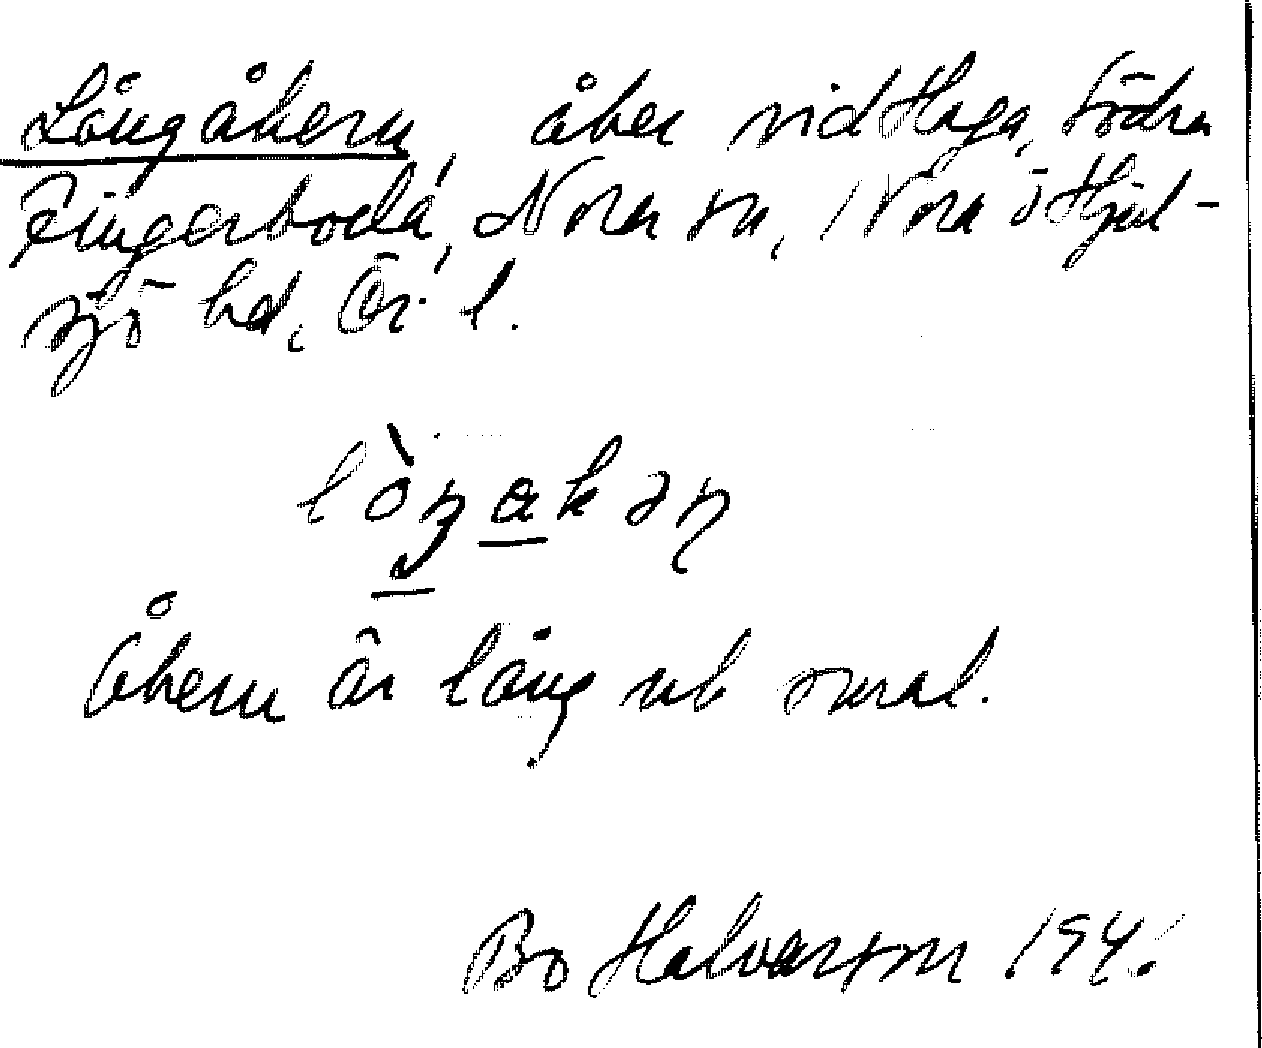 Långåkern, åker vid Haga, Södra
Fingerboda, Nora sn, Nora o Hjul-
sjö hd, Ör. l.
lòŋakəɳ
Åkern är lång och smal.
Bo Halvarson